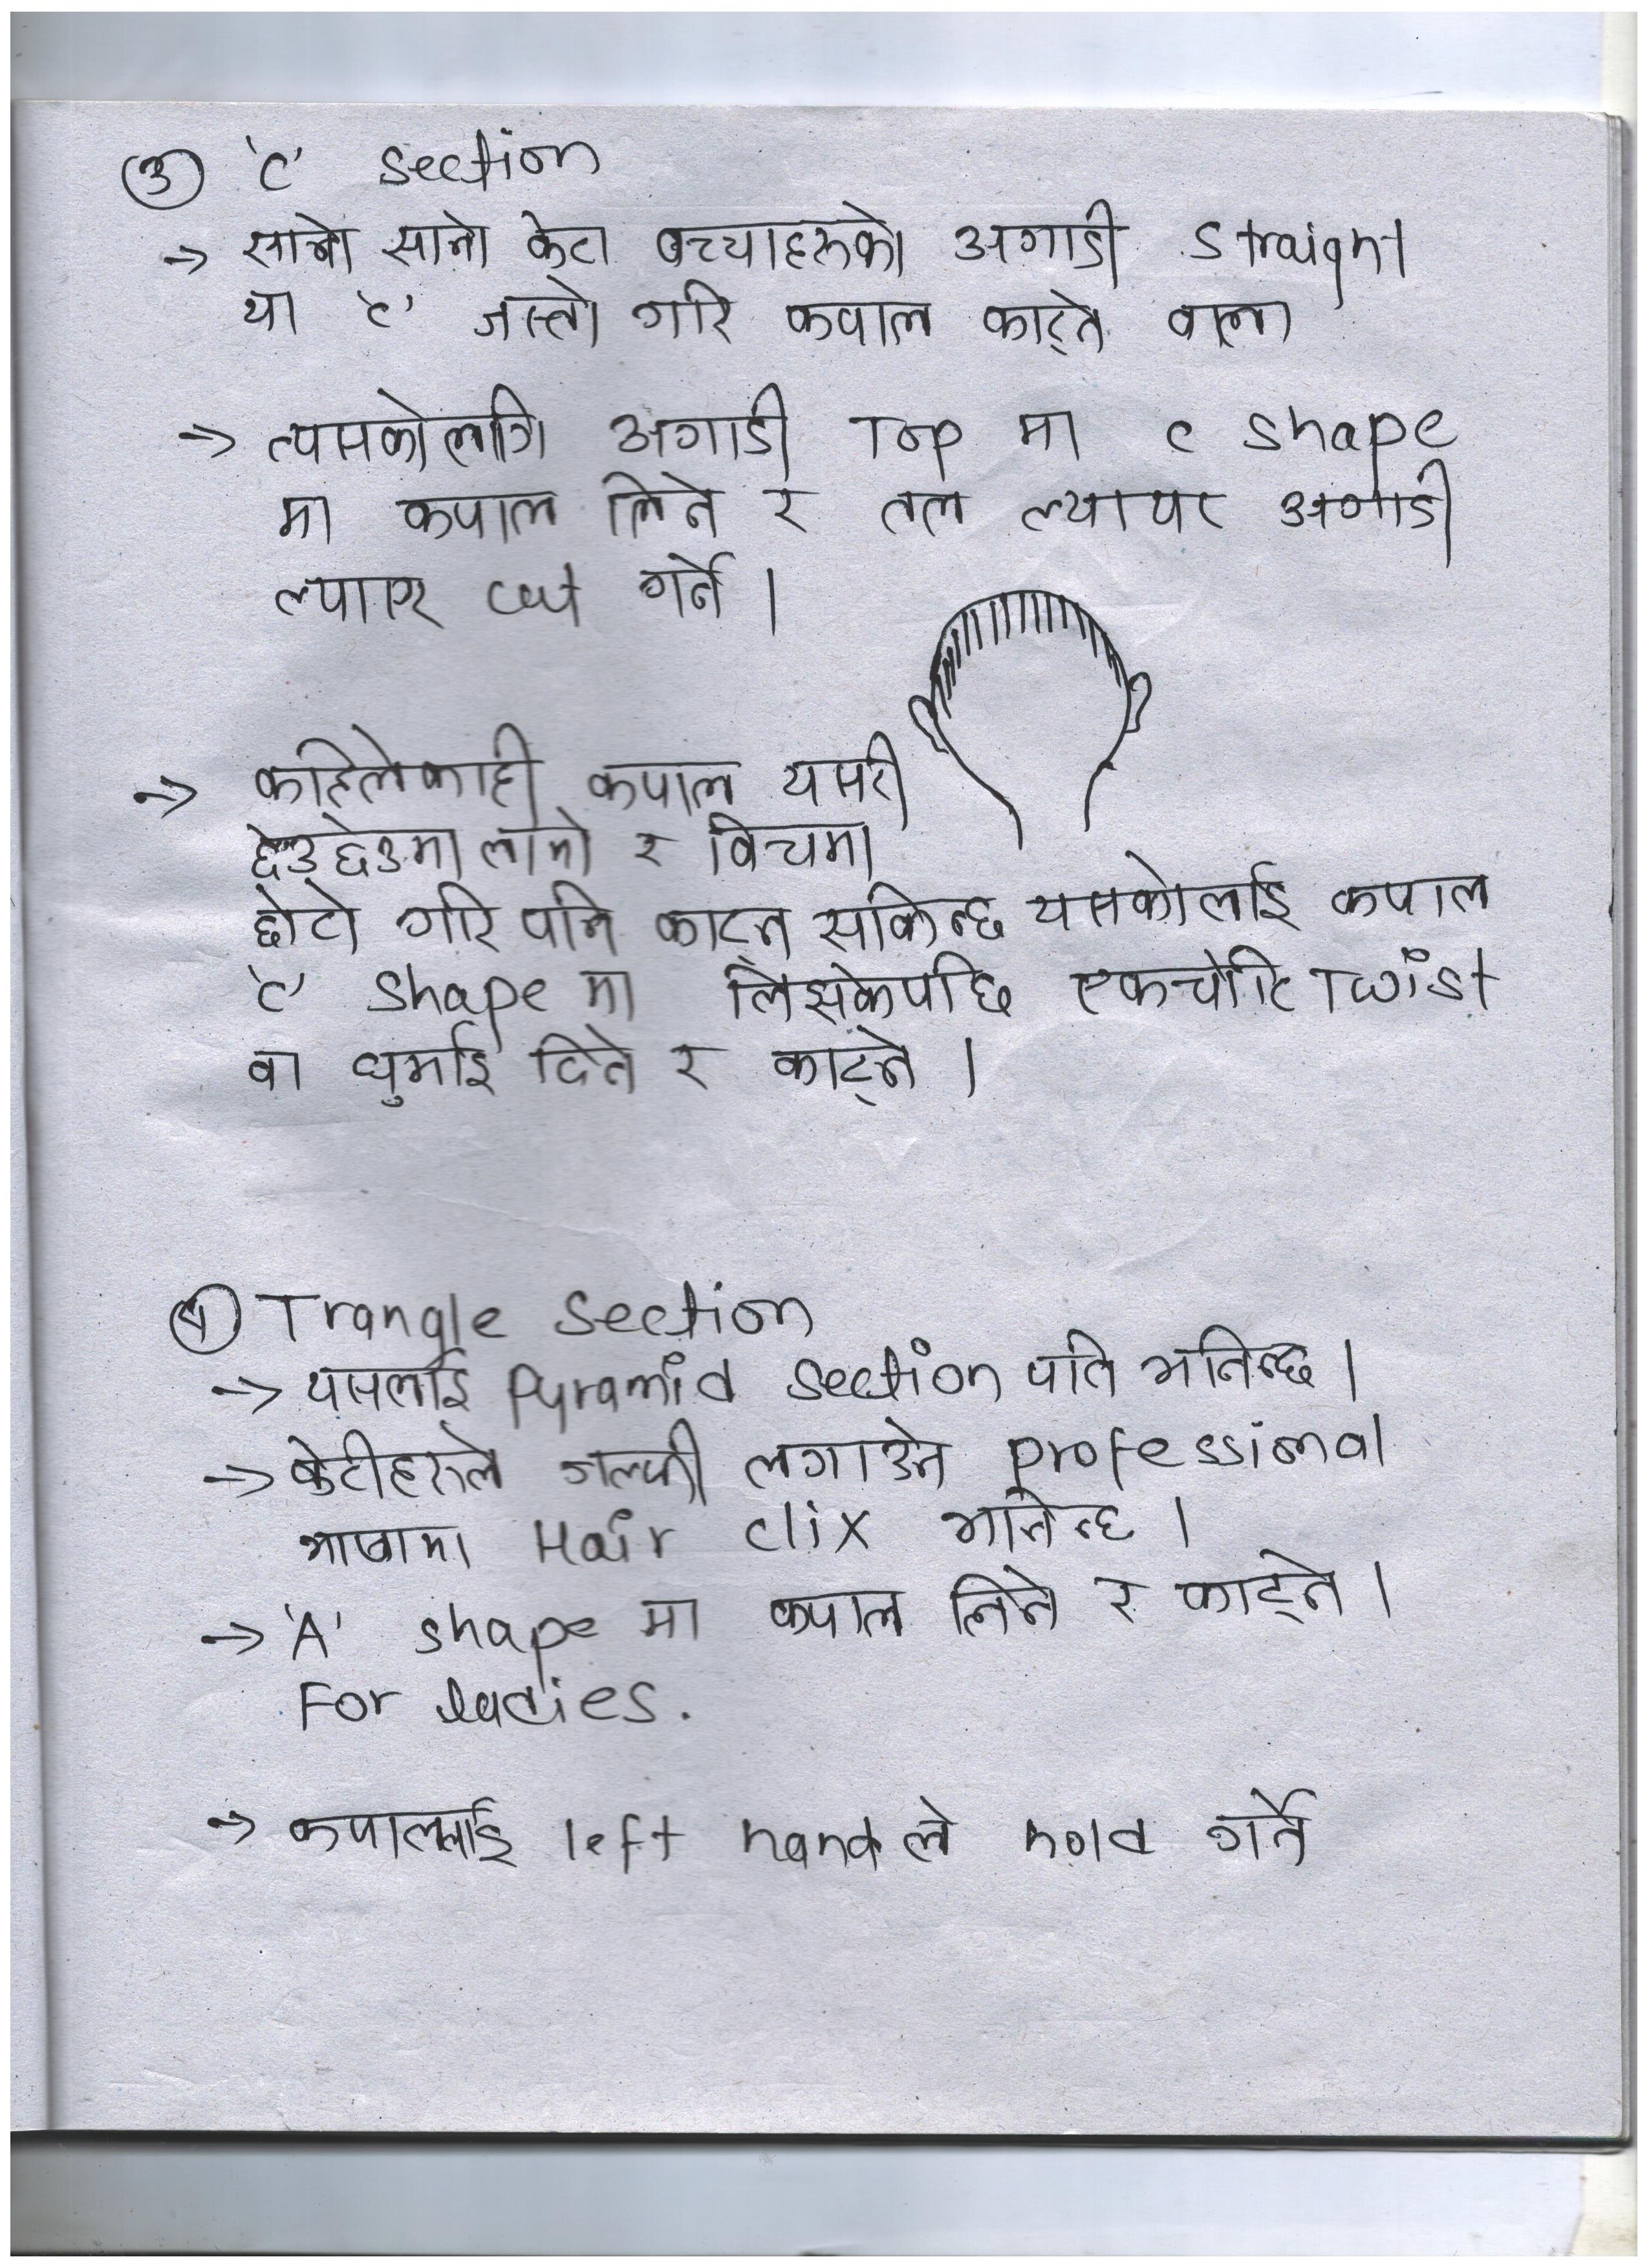 ③ 'C' section
→ सानो सानो केटा बच्चाहरुको अगाडी straight
या 'c' जस्तो गरि कपाल काट्ने वाला
→ त्यसकोलागि अगाडी Top मा c shape
मा कपाल लिने र तल ल्यायर अगाडी
ल्याएर cut गर्ने ।
→ कहिलेकाही कपाल यसरी
छेउछेउमा लामो र बिचमा
छोटो गरि पनि काट्न सकिन्छ यसकोलाई कपाल
'c' shape मा लिइसकेपछि एकचोटि Twist
वा घुमाई दिने र काट्ने ।
④ Trangle section
→ यसलाई Pyramid section पनि भनिन्छ ।
→ केटीहरुले गल्फी लगाउने professional
भाषामा Hair clix भनिन्छ ।
→ 'A' shape मा कपाल लिने र काट्ने ।
For ladies.
→ कपाललाई left hand ले गर्ने